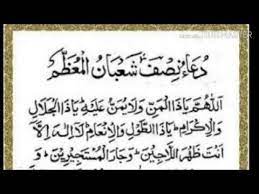 دُعَاءِ نِصْفِ شَعْبَانُ الْمُعَظَّمْ
اَللّٰهُمَّ يَا ذَا الْمَنِّ وَلَا يُمَنُّ عَلَيْهِ يَا ذَا الْجَلَالِ
وَالْاِكْرَامِ يَا ذَا الطَّوْلِ وَالْاِنْعَامِ لَا اِلٰهَ اِلَّا
اَنْتَ ظَهْرُ اللَّاجِيْنَ وَجَارُ الْمُسْتَجِيْرِيْنَ